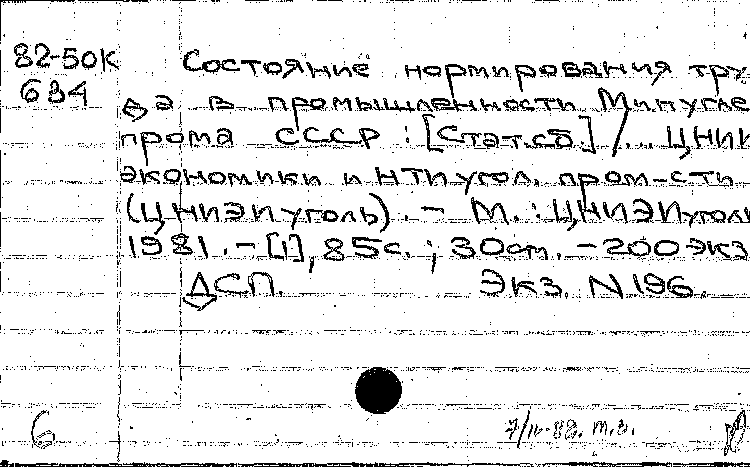 82-50К
634
Состояние нормирования тру
да в промышленности Минугле
прома СССР : [Стат.сб.] / ... ЦНИИ
экономики и НТИ угол. пром-сти
(ЦНИЭИуголь). - М. : ЦНИЭИуголь
1981. - [1], 85с. ; 30см. - 200 экз
ДСП. Экз. N 196.
6
7/IV-82. т.з.